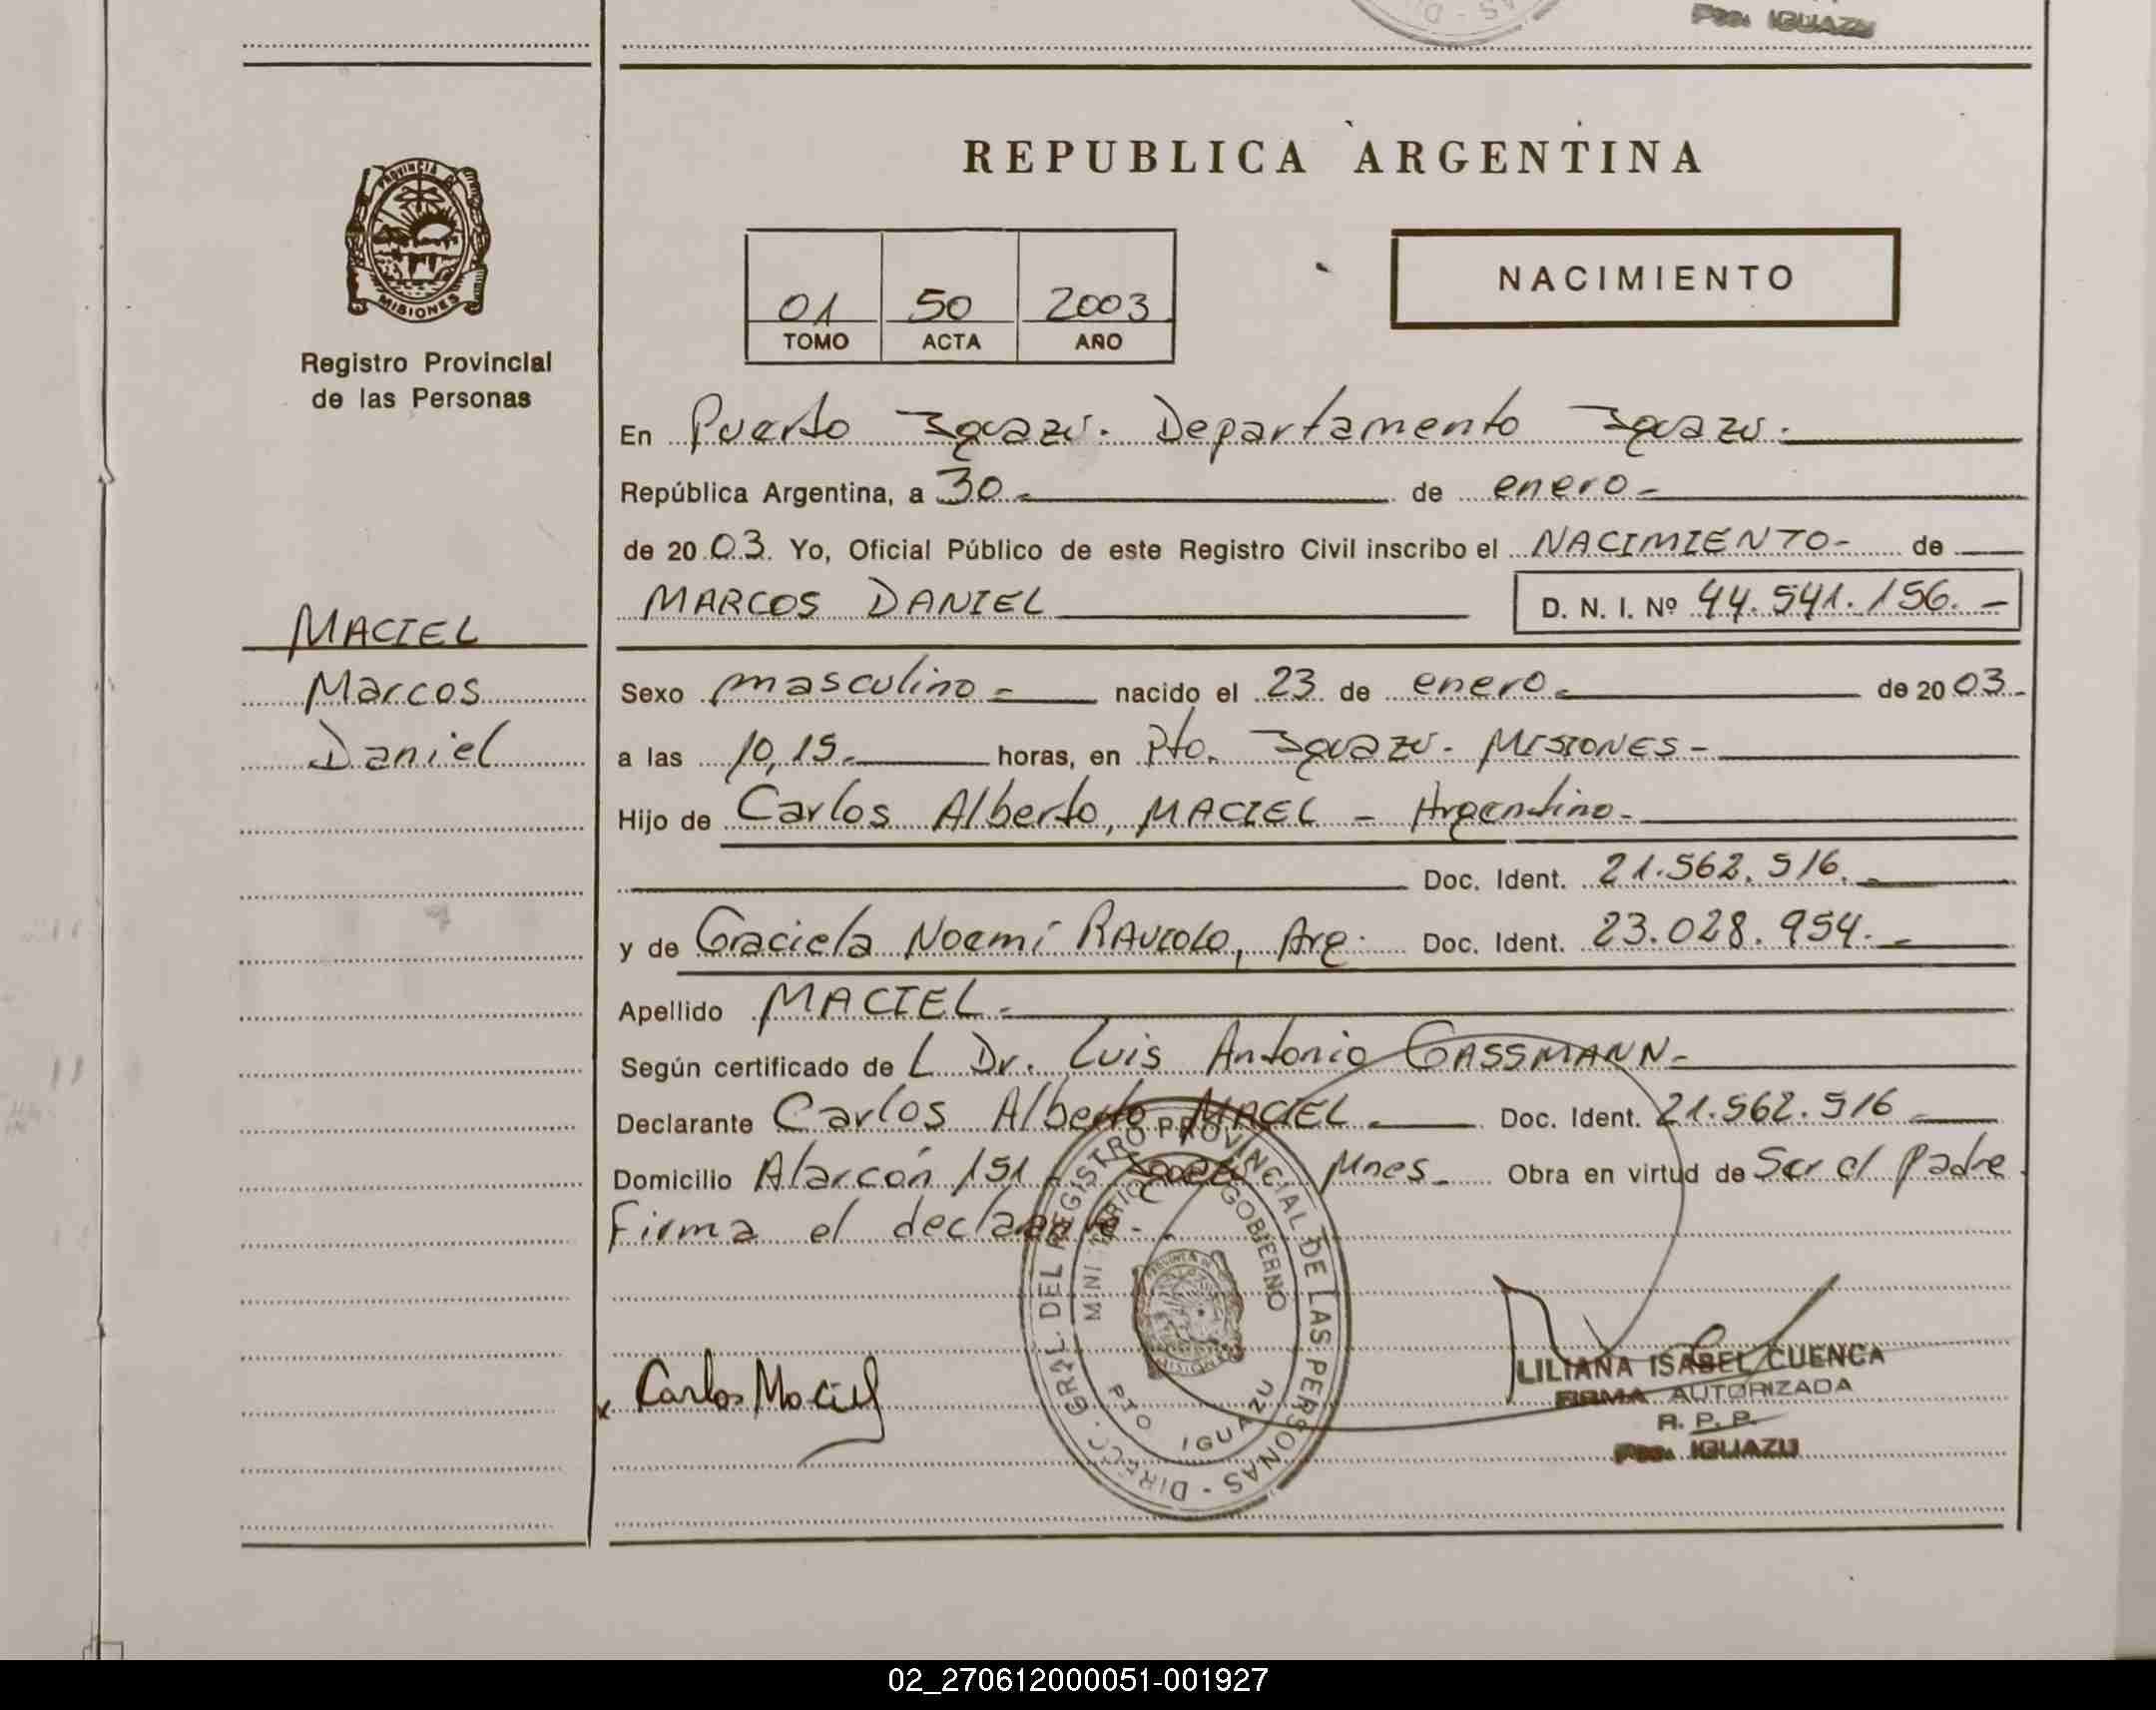 Pto. IGUAZU
PROVINCIA DE
MISIONES
Registro Provincial
de las Personas
MACIEL
Marcos
Daniel
REPUBLICA ARGENTINA
NACIMIENTO
01 50 2003
TOMO ACTA AÑO
En Puerto Iguazú. Departamento Iguazú.
República Argentina, a 30 - de enero -
de 20 03. Yo, Oficial Público de este Registro Civil inscribo el NACIMIENTO - de
MARCOS DANIEL D. N. I. Nº 44.541.156. -
Sexo masculino - nacido el 23 de enero - de 20 03 -
a las 10,15 - horas, en Pto. Iguazú - MISIONES -
Hijo de Carlos Alberto, MACIEL - Argentino -
Doc. Ident. 21.562.516. -
y de Graciela Noemí RAVIOLO, Arg. Doc. Ident. 23.028.954. -
Apellido MACIEL -
Según certificado de L Dr. Luis Antonio GASSMANN -
Declarante Carlos Alberto MACIEL - Doc. Ident. 21.562.516 -
Domicilio Alarcón 151 - Iguazú Mnes - Obra en virtud de Ser el padre.
Firma el declarante. -
DIRECC. GRAL. DEL REGISTRO PROVINCIAL DE LAS PERSONAS -
MINISTERIO GOBIERNO
PTO IGUAZU
x Carlos Maciel
LILIANA ISABEL CUENCA
FIRMA AUTORIZADA
R. P. P.
Pto. IGUAZU
02_270612000051-001927